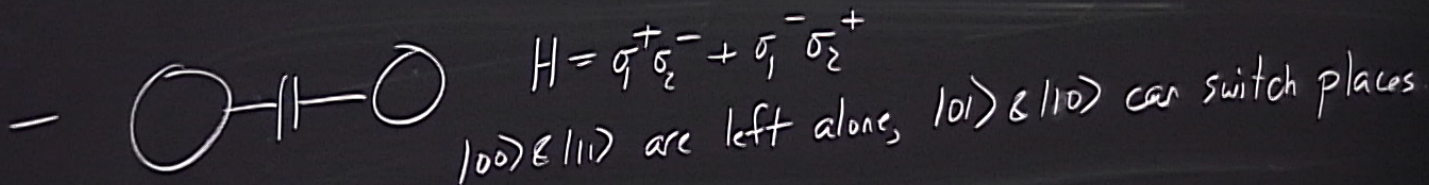 H = σ₁⁺σ₂⁻ + σ₁⁻σ₂⁺
|00⟩ & |11⟩ are left alone, |01⟩ & |10⟩ can switch places.